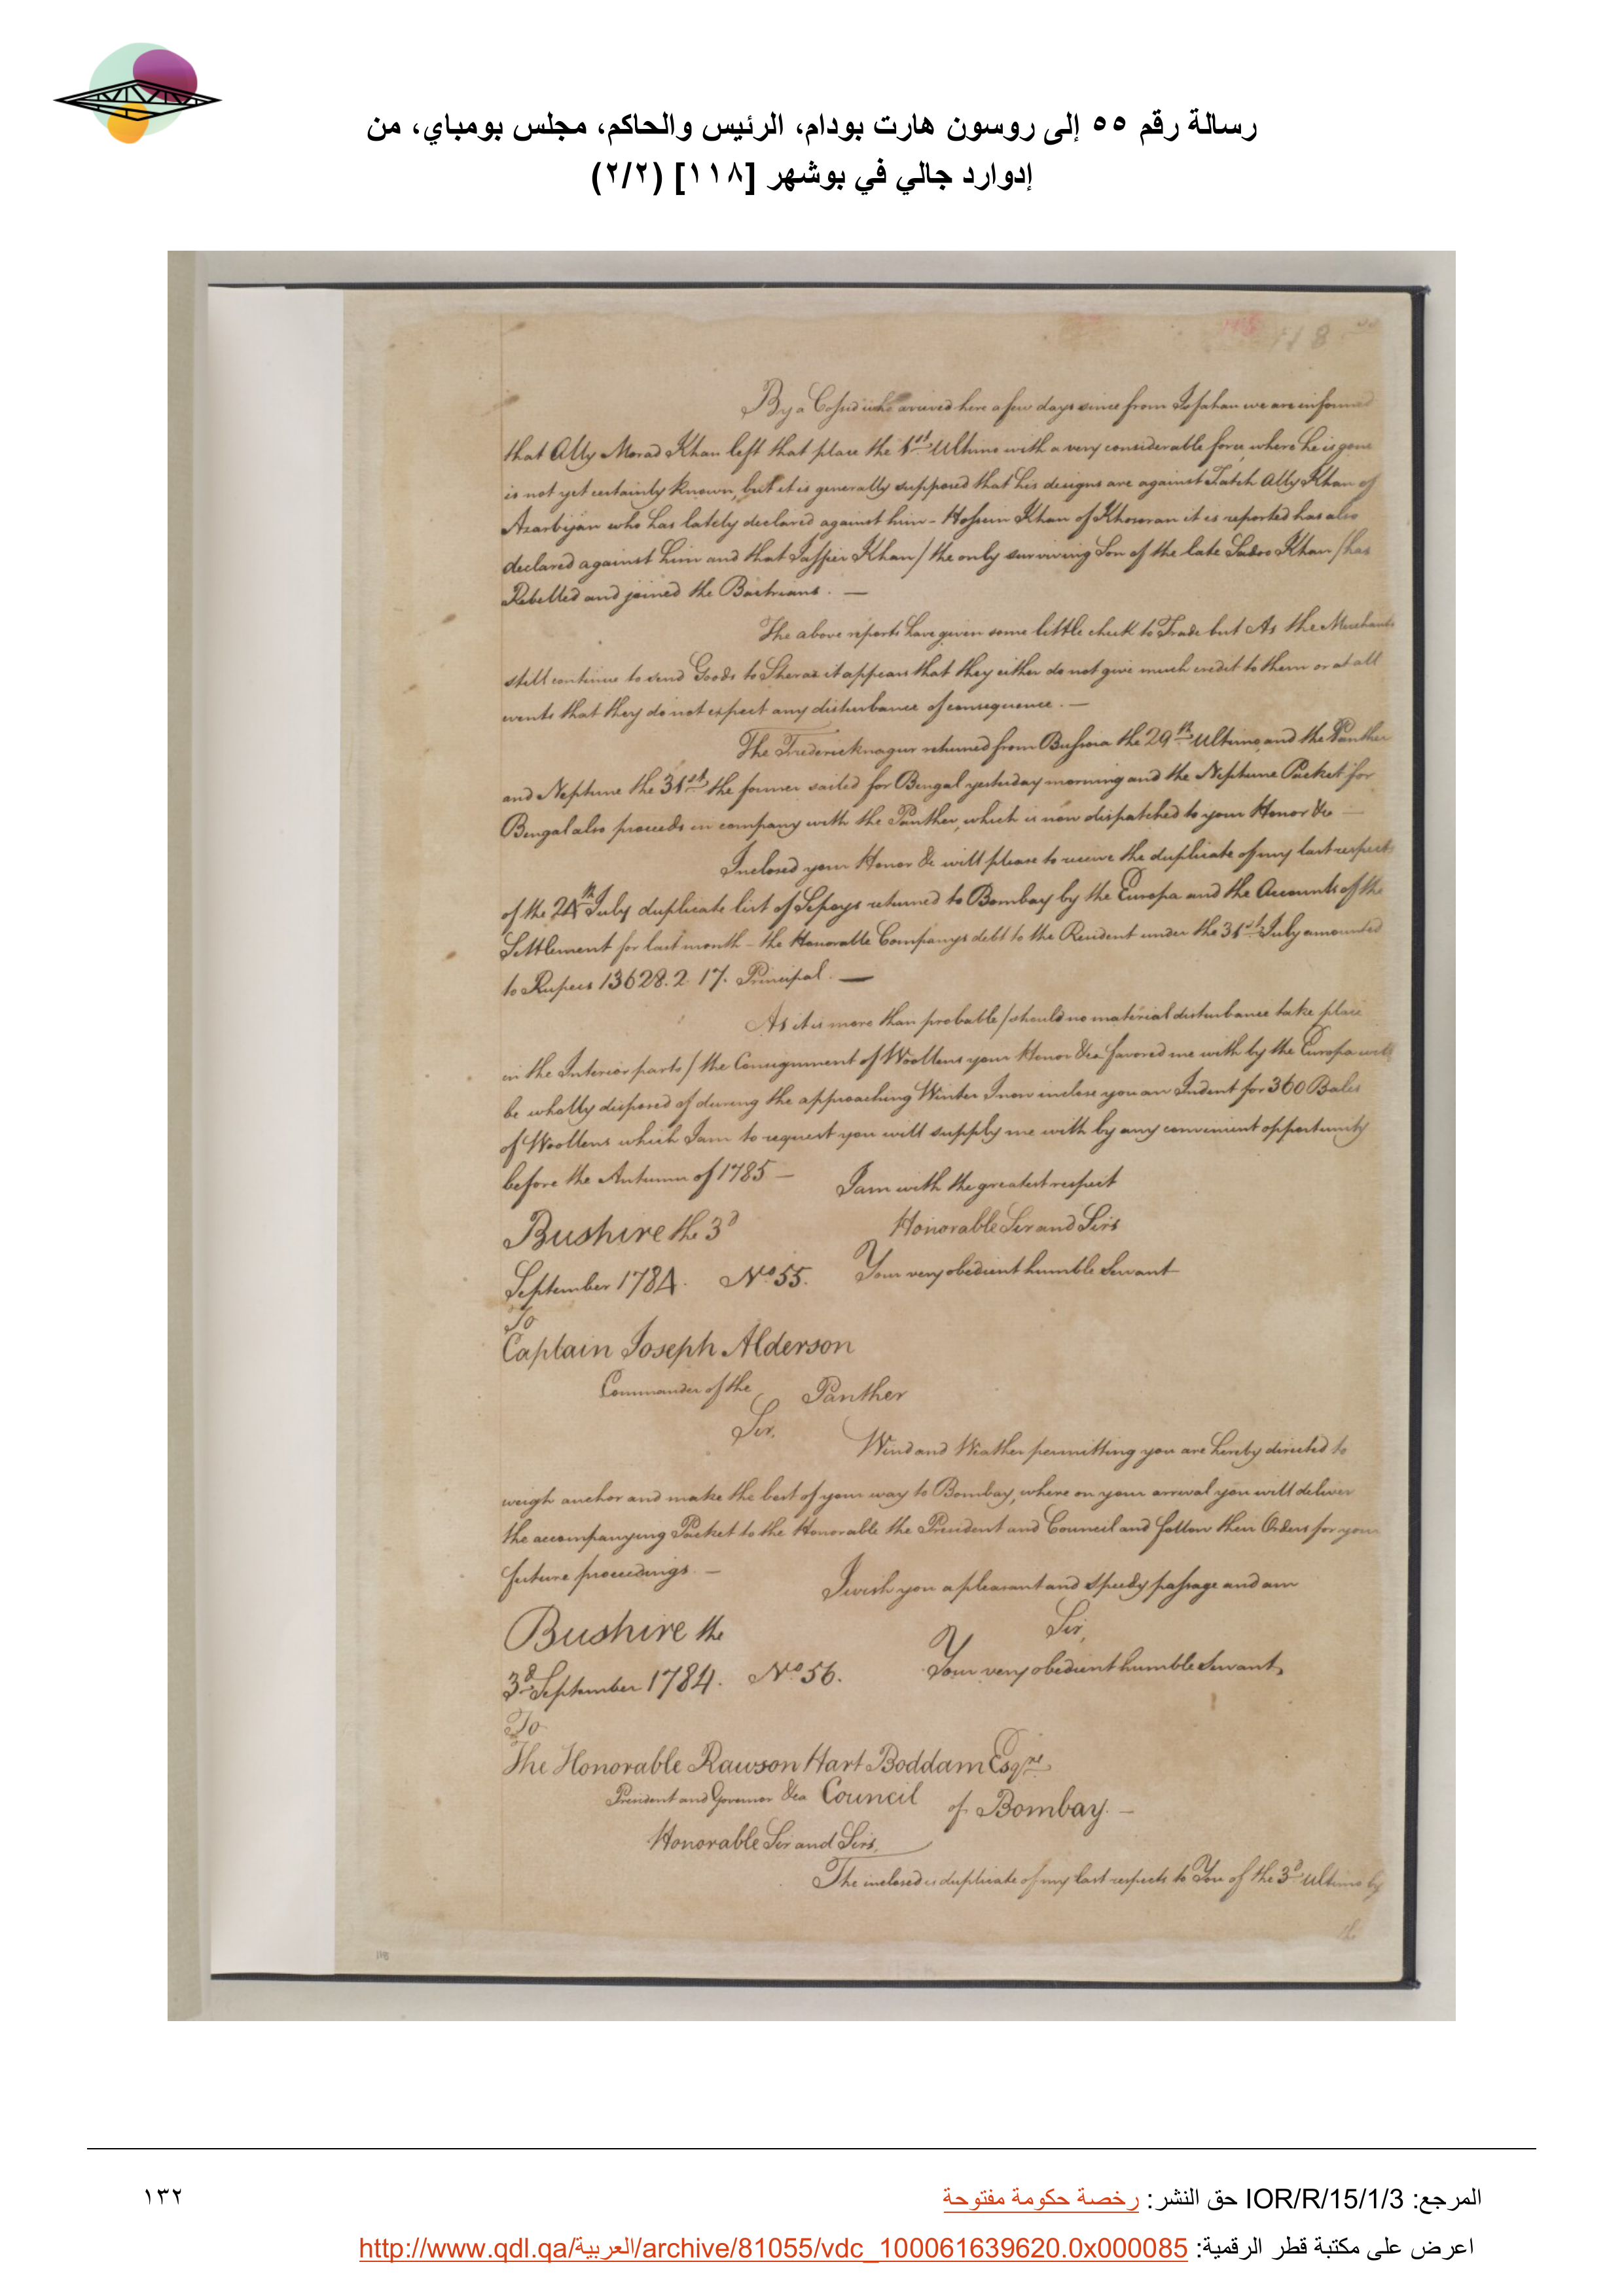 رسالة رقم ٥٥ إلى روسون هارت بودام، الرئيس والحاكم، مجلس بومباي، من
إدوارد جالي في بوشهر [١١٨] (٢/٢)
118
By a Cossid who arrived here a few days since from Isfahan we are informed
that Ally Morad Khan left that place the 1st Ultimo with a very considerable force, where he is gone
is not yet certainly known, but it is generally supposed that his designs are against Fateh Ally Khan of
Azarbijan who has lately declared against him - Hossein Khan of Khoworan it is reported has also
declared against him and that Jaffier Khan / the only surviving Son of the late Sadoo Khan / has
Rebelled and joined the Bactrians. —
The above reports have given some little check to Trade but As the Merchants
still continue to send Goods to Sheraz it appears that they either do not give much credit to them or at all
events that they do not expect any disturbance of consequence. —
The Fredericknagur returned from Bussora the 29th Ultimo, and the Panther
and Neptune the 31st the former sailed for Bengal yesterday morning and the Neptune Packet for
Bengal also proceeds in company with the Panther, which is now dispatched to your Honor &c —
Inclosed your Honor &c will please to receive the duplicate of my last respects
of the 24th July duplicate list of Sepoys returned to Bombay by the Europa and the Accounts of the
Settlement for last month - the Honorable Companys debt to the Resident under the 31st July amounted
to Rupees 13628. 2. 17. Principal. —
As it is more than probable / should no material disturbance take place
in the Interior parts / the Consignment of Woollens your Honor &ca favored me with by the Europa will
be wholly disposed of during the approaching Winter I now inclose you an Indent for 360 Bales
of Woollens which I am to request you will supply me with by any convenient opportunity
before the Autumn of 1785 — I am with the greatest respect
Bushire the 3d Honorable Sir and Sirs
September 1784. No 55. Your very obedient humble Servant
To
Captain Joseph Alderson
Commander of the Panther
Sir,
Wind and Weather permitting you are hereby directed to
weigh anchor and make the best of your way to Bombay, where on your arrival you will deliver
the accompanying Packet to the Honorable the President and Council and follow their Orders for your
future proceedings — I wish you a pleasant and speedy passage and am
Bushire the Sir,
3d September 1784. No 56. Your very obedient humble Servant
To
The Honorable Rawson Hart Boddam Esqre
President and Governor &ca Council of Bombay. —
Honorable Sir and Sirs,
The inclosed is duplicate of my last respects to You of the 3d ultimo by
the
118
المرجع: IOR/R/15/1/3 حق النشر: رخصة حكومة مفتوحة
١٣٢
اعرض على مكتبة قطر الرقمية: http://www.qdl.qa/العربية/archive/81055/vdc_100061639620.0x000085